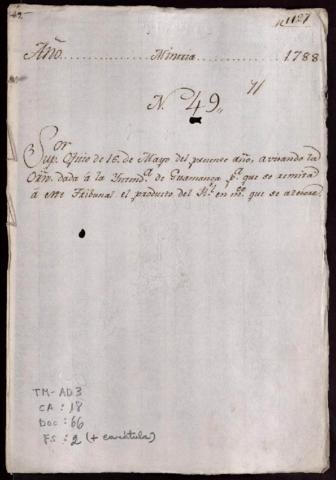 Año ........ Mineria ........ 1788
N. 49,,
Sor
Sup. Oficio de 16. de Mayo del presente año, avisando la
Orn. dada à la Yntenda. de Guamanga pa. que se remita
à este Tribunal el producto del Rl. en mo. que se
TM-AD3
CA : 18
DOC : 66
FS : 2 (+ carátula)